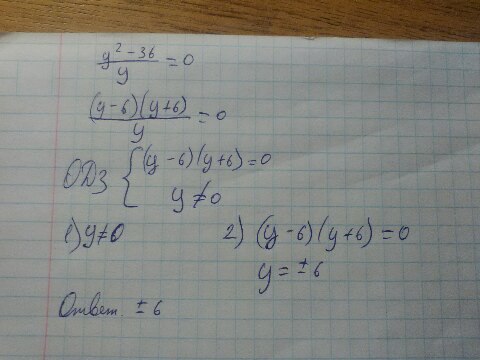 (y² - 36)/y = 0
((y-6)(y+6))/y = 0
ОДЗ { (y-6)(y+6)=0
y ≠ 0
1) y≠0 2) (y-6)(y+6)=0
y = ± 6
Ответ ± 6